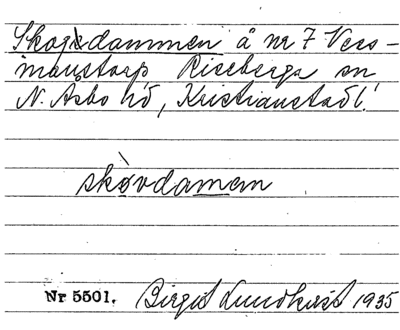 Skogsdammen å nr 7 Vers-
manstorp Riseberga sn
N. Åsbo hd, Kristianstads l.
skòvdamen
Nr 5501. Birgit Lundkvist 1935